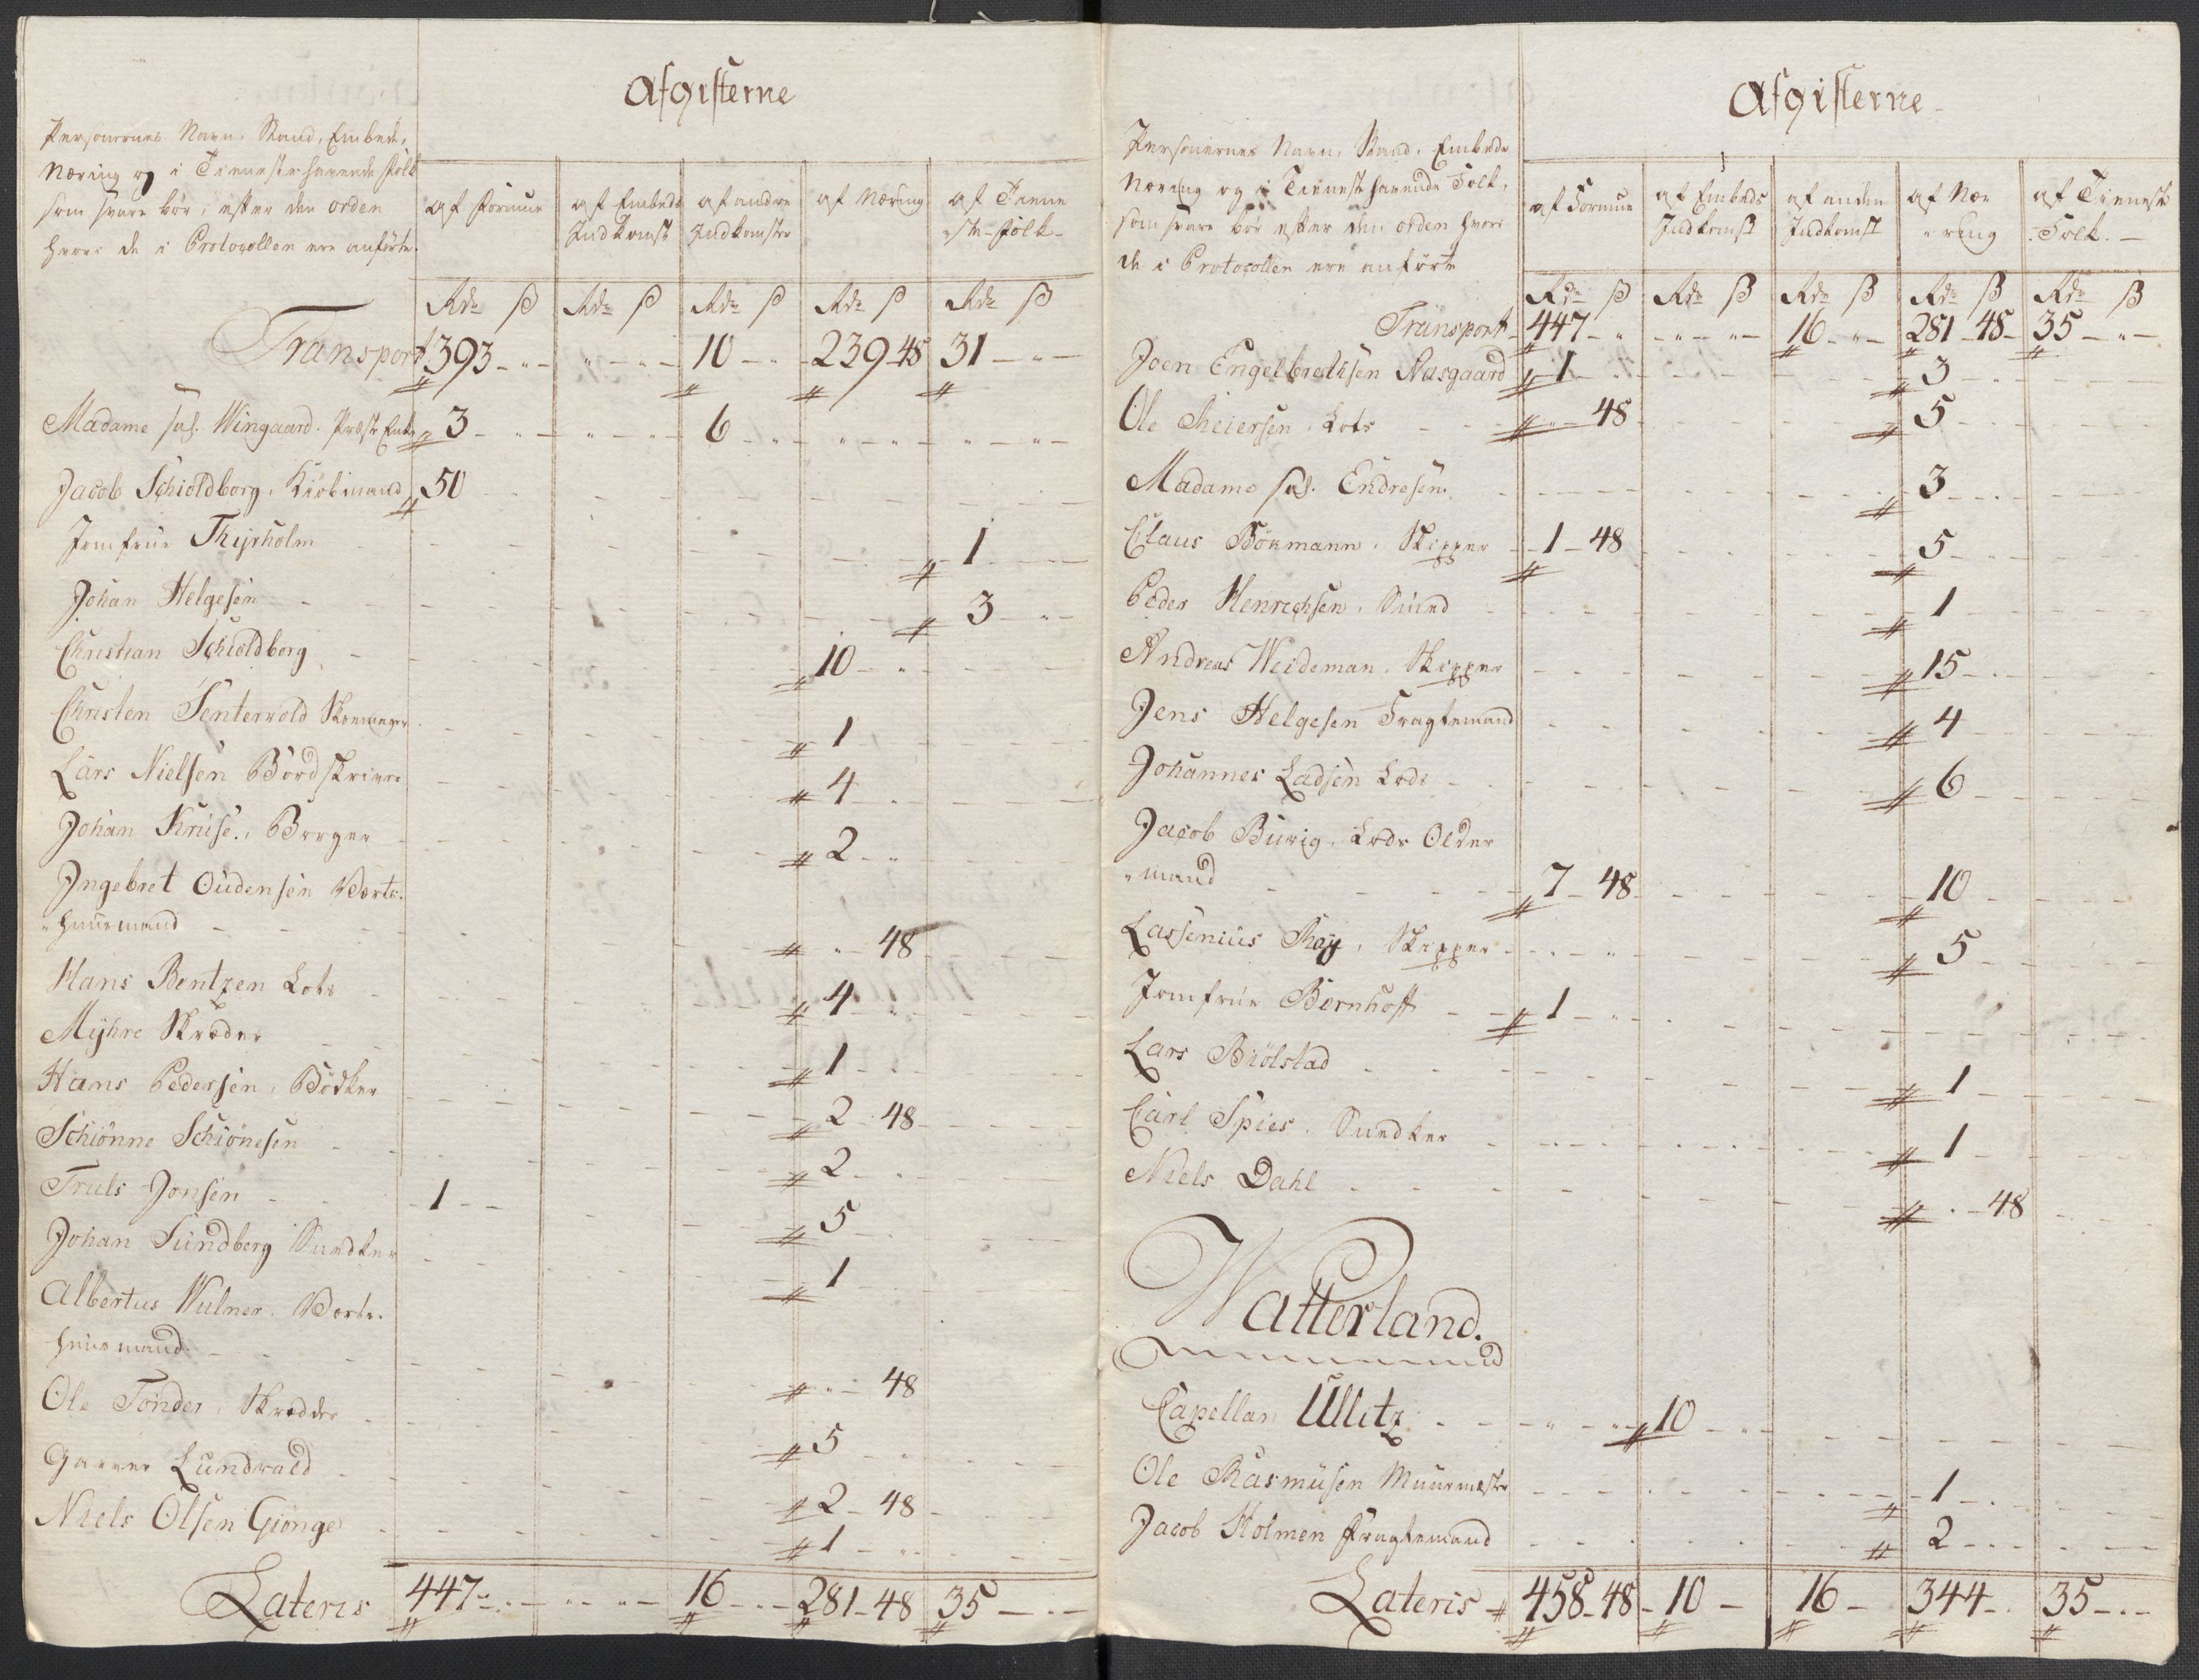 Afgifterne
Personernes Navn, Stand, Embede,
Næring og i Tieneste havende Folk
som svare bör, efter den orden
hvori de i Protocollen ere anförte.
af Formue | af Embeds Indkomst | af andre Indkomster | af Næring | af Tieneste-Folk
Rdr ß | Rdr ß | Rdr ß | Rdr ß | Rdr ß
Transport 393 - " | " - " | 10 - " | 239 - 48 | 31 - "
Madame sal. Wingaard. Præste Enke 3 - " | " - " | 6 - " | " - " | " - "
Jacob Schioldborg, Kiöbmand 50
Jomfrue Thyrholm 1
Johan Helgesen 3 - "
Christian Schioldborg 10 - "
Christen Tentervold Skoemager 1
Lars Nielsen Bordskriver 4
Johan Kruse, Borger 2 - "
Ingebret Oudensen Værts-
"huusmand " - 48
Hans Bentzen Lots 4
Myhre Skræder 1
Hans Pedersen, Bödker 2 - 48
Schiönne Schiönesen 2
Truls Jonsen 1 - - 5
Johan Sundberg Snedker 1
Albertus Wulner. Verts-
huusmand " - 48
Ole Tönder, Skrædder 5
Garver Lundvald 2 - 48
Niels Olsen Gionge 1 - "
Lateris 447 - " | " - " | 16 - " | 281 - 48 | 35 - "
Afgifterne
Personernes Navn, Stand, Embede
Næring og i Tieneste havende Folk,
som svare bör efter den orden hvori
de i Protocollen ere anförte
af Formue | af Embeds Indkomst | af anden Indkomst | af Næring | af Tieneste Folk.
Rdr ß | Rdr ß | Rdr ß | Rdr ß | Rdr ß
Transport 447 - " | " - " | 16 - " | 281 - 48 | 35 - "
Joen Engelbrethsen Aasgaard 1 3
Ole Theiersen, Lots " - 48 5
Madame sal. Endresen 3
Claus Bökmann, Skipper 1 - 48 5
Peder Henrichsen, Smed 1
Andreas Weideman, Skipper 15
Jens Helgesen Fragtemand 4
Johannes Ladsen Lods 6
Jacob Burig, Lods Older
"mand 7 - 48 10
Lassenius Roy, Skipper 5
Jomfrue Bernhoft 1 - "
Lars Biölstad 1
Carl Spies, Snedker 1
Niels Dahl " - 48
Watterland.
Capellan Ullitz 10
Ole Rasmusen Muurmester 1
Jacob Holmen Fragtemand 2
Lateris 458 - 48 | 10 - | 16 - | 344 - | 35 - "